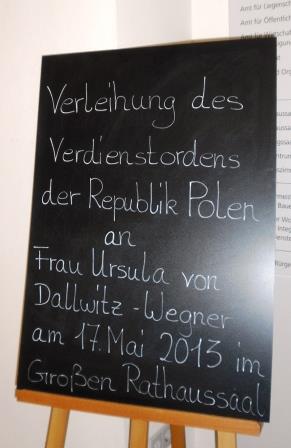 Verleihung des
Verdienstordens
der Republik Polen
an
Frau Ursula von
Dallwitz-Wegner
am 17. Mai 2013 im
Großen Rathaussaal
Amt für Liegensch
Amt für Öffentlic